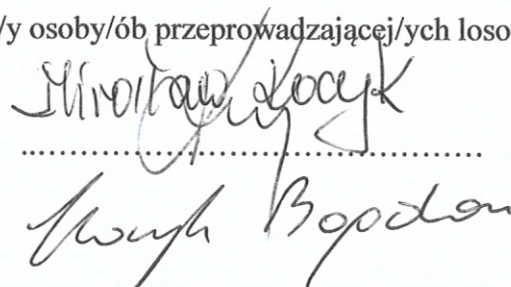 /y osoby/ób przeprowadzającej/ych loso
Mirosław Kocyk
..................................................
Bogdan